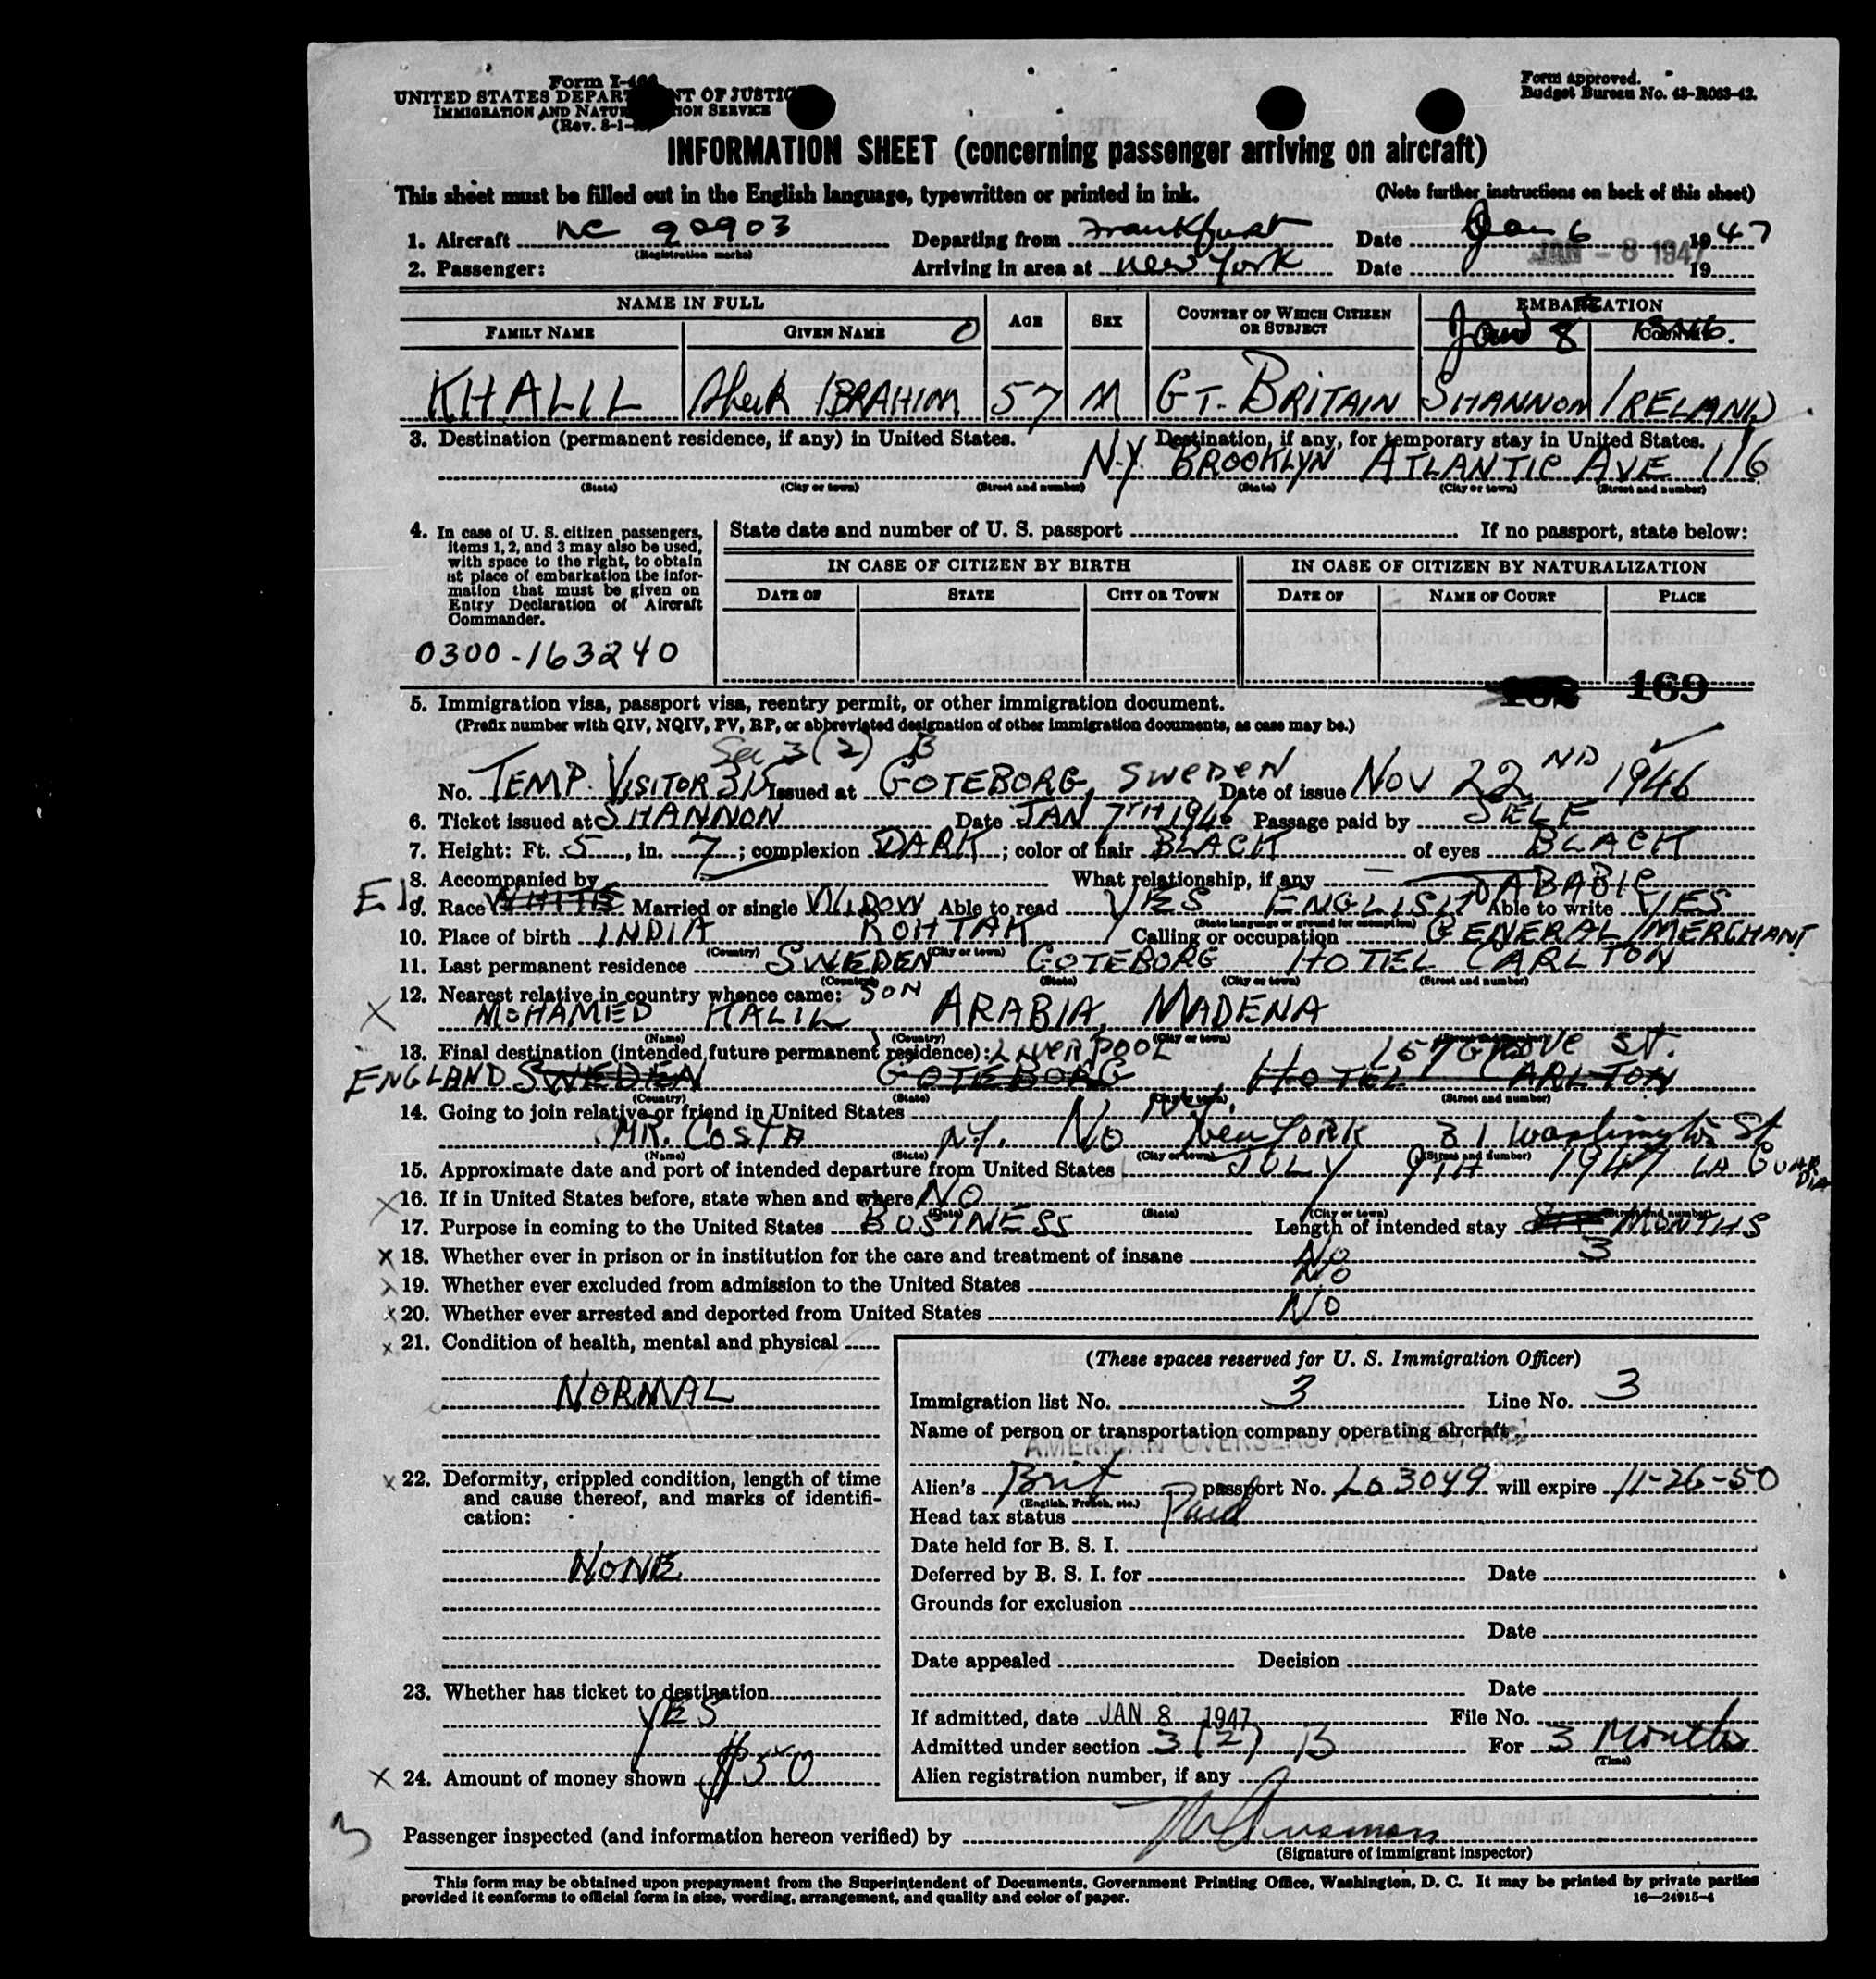 Form I-466
UNITED STATES DEPARTMENT OF JUSTICE
IMMIGRATION AND NATURALIZATION SERVICE
(Rev. 8-1-
Form approved.
Budget Bureau No. 43-R063-42.
INFORMATION SHEET (concerning passenger arriving on aircraft)
This sheet must be filled out in the English language, typewritten or printed in ink. (Note further instructions on back of this sheet)
1. Aircraft NC 90903 Departing from Frankfurt Date Jan 6 1947
(Registration marks)
2. Passenger: Arriving in area at New York Date JAN - 8 1947 19
NAME IN FULL AGE SEX COUNTRY OF WHICH CITIZEN OR SUBJECT EMBARKATION
FAMILY NAME GIVEN NAME Jan 8
KHALIL Sheik IBRAHIM 57 M GT. BRITAIN SHANNON IRELAND
3. Destination (permanent residence, if any) in United States. Destination, if any, for temporary stay in United States.
N.Y. BROOKLYN ATLANTIC AVE 116
(State) (City or town) (Street and number) (State) (City or town) (Street and number)
4. In case of U. S. citizen passengers, items 1, 2, and 3 may also be used, with space to the right, to obtain at place of embarkation the information that must be given on Entry Declaration of Aircraft Commander.
0300-163240
State date and number of U. S. passport If no passport, state below:
IN CASE OF CITIZEN BY BIRTH IN CASE OF CITIZEN BY NATURALIZATION
DATE OF STATE CITY OR TOWN DATE OF NAME OF COURT PLACE
169
5. Immigration visa, passport visa, reentry permit, or other immigration document.
(Prefix number with QIV, NQIV, PV, RP, or abbreviated designation of other immigration documents, as case may be.)
Sec 3(2) B
No. TEMP. VISITOR 315 Issued at GOTEBORG, SWEDEN Date of issue NOV 22 ND 1946
6. Ticket issued at SHANNON Date JAN 7TH 1946 Passage paid by SELF
7. Height: Ft. 5, in. 7; complexion DARK; color of hair BLACK of eyes BLACK
8. Accompanied by What relationship, if any
E I 9. Race WHITE Married or single WIDOW Able to read YES ENGLISH ARABIC Able to write YES
(State language or ground for exemption)
10. Place of birth INDIA ROHTAK Calling or occupation GENERAL MERCHANT
(Country) (City or town)
11. Last permanent residence SWEDEN GOTEBORG HOTEL CARLTON
(Country) (State) (City or town) (Street and number)
X 12. Nearest relative in country whence came: SON
MOHAMED KALIL ARABIA, MADENA
(Name) (Country) (City or town)
13. Final destination (intended future permanent residence): LIVERPOOL 157 GROVE ST.
ENGLAND SWEDEN GOTEBORG HOTEL CARLTON
(Country) (State) (City or town) (Street and number)
14. Going to join relative or friend in United States No N.Y.
MR. COSTA N.Y. No New York 31 Washington St
(Name) (State) (City or town) (Street and number)
15. Approximate date and port of intended departure from United States JULY 9TH 1947 LA GUARDIA
X 16. If in United States before, state when and where NO
(Date) (State) (City or town) (Street and number)
17. Purpose in coming to the United States BUSINESS Length of intended stay MONTHS
3
X 18. Whether ever in prison or in institution for the care and treatment of insane No
X 19. Whether ever excluded from admission to the United States No
X 20. Whether ever arrested and deported from United States No
X 21. Condition of health, mental and physical
NORMAL
X 22. Deformity, crippled condition, length of time and cause thereof, and marks of identification:
NONE
23. Whether has ticket to destination
YES
X 24. Amount of money shown $50
(These spaces reserved for U. S. Immigration Officer)
Immigration list No. 3 Line No. 3
Name of person or transportation company operating aircraft
AMERICAN OVERSEAS AIRLINES, Inc.
Alien's Brit passport No. L03049 will expire 11-26-50
(English, French, etc.)
Head tax status Paid
Date held for B. S. I.
Deferred by B. S. I. for Date
Grounds for exclusion
Date
Date appealed Decision
Date
If admitted, date JAN 8 1947 File No.
Admitted under section 3(2) B For 3 Months
(Time)
Alien registration number, if any
3
Passenger inspected (and information hereon verified) by
(Signature of immigrant inspector)
This form may be obtained upon prepayment from the Superintendent of Documents, Government Printing Office, Washington, D. C. It may be printed by private parties
provided it conforms to official form in size, wording, arrangement, and quality and color of paper. 16—24915-4